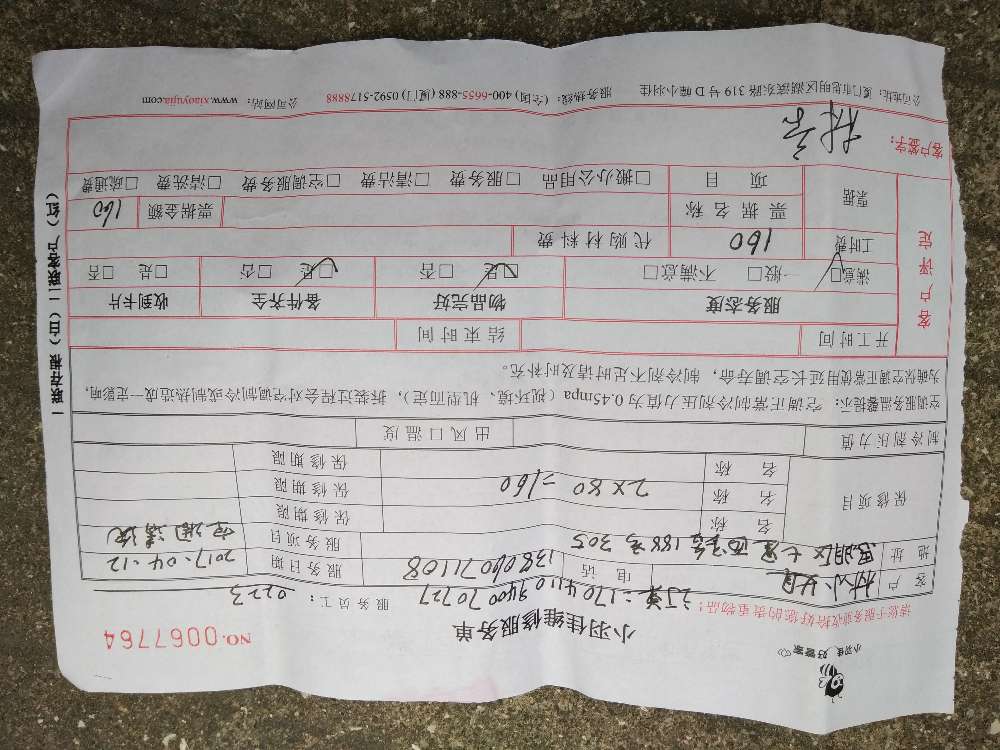 小羽佳 好管家
小羽佳维修服务单
NO.0067764
请您于服务前收拾好您的贵重物品!
订单:1704110940070727
服务员工: 0223
客户 林小姐 电话 13806071108 服务日期 2017.04.12
地址 思明区 188号305 服务项目 空调清洗
保修项目
名称 保修期限
名称 2×80=160 保修期限
名称 保修期限
制冷剂压力值 出风口温度
空调服务温馨提示: 空调正常制冷剂压力值为0.45mpa(视环境、机型而定), 拆装过程会对空调制冷或制热造成一定影响,
为确保空调正常使用延长空调寿命, 制冷剂不足时请及时补充。
开工时间 结束时间
客户评定
服务态度 物品完好 备件齐全 收到卡片
满意□ 一般□ 不满意□ 是□ 否□ 是□ 否□ 是□ 否□
工时费 160 代购材料费
票据 票据名称 票据金额 160
项目 □搬办公用品 □服务费 □清洁费 □空调服务费 □清洗费 □疏通费
客户签字:
公司地址: 厦门市思明区湖滨东路319号D幢小羽佳 服务热线: (全国)400-6655-888 (厦门)0592-5178888 公司网站: www.xiaoyujia.com
一联存根(白)二联客户(红)